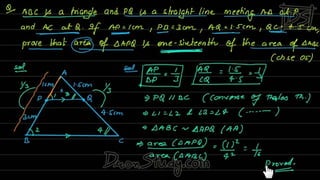 Q. ABC is a triangle and PQ is a straight line meeting AB at P
and AC at Q. If AP=1cm, PB=3cm, AQ=1.5cm, QC=4.5cm,
prove that area of △APQ is one-sixteenth of the area of △ABC
(CBSE 05)
sol
A
1cm
1.5cm
1/3
1/3
P
Q
3cm
4.5cm
B
2
4
C
sol
AP/BP = 1/3
AQ/ = 1.5/4.5 = 1/3
⇒ PQ ∥ BC (Converse of Thales Th.)
⇒ ∠1=∠2 & ∠3=∠4 (.......)
⇒ △ABC ~ △APQ (AA)
⇒ area(△APQ)/area(△ABC) = (1)²/4² = 1/16
Proved.
DronStudy.com